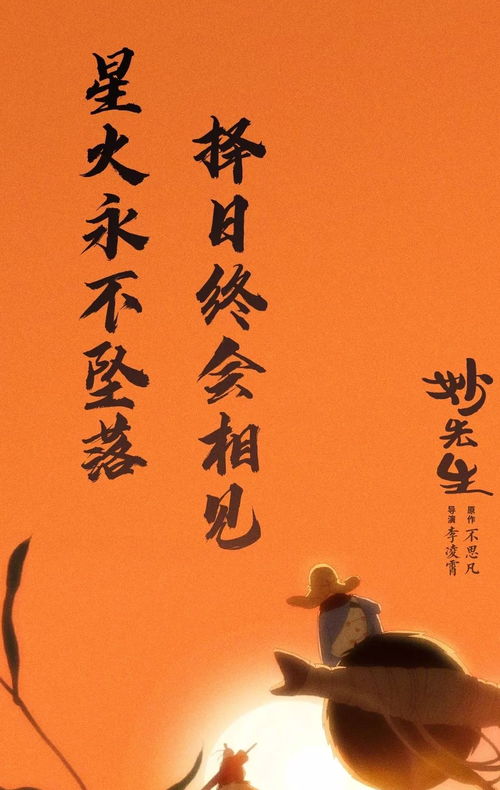 星火永不坠落
择日终会相见
妙先生
原作 不思凡
导演 李凌霄